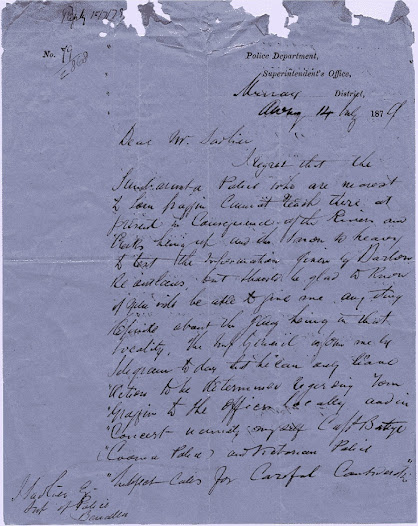 Reply 15/7/79
No. 79
Police Department,
Superintendent's Office,
Murray District,
Albury 14 July 1879
Dear Mr. Sadlier
I regret that the
Police who are nearest
to Tom Groggin Cannot reach there at
present in Consequence of the Rivers and
Creeks being up and the snow so heavy
to test the information given by
but should be glad to know
if you will be able to give me any thing
definite about the gang being in that
locality, the Insp General informs me by
telegram to day that he can only leave
"action to be determined regarding Tom
"Groggin to the officers locally and in
"Concert namely myself Capt Battye
"(Cooma Police) and Victorian Police
"Subject Calls for Careful Consideration"
J Sadlier Esq
Supt of Police
Benalla